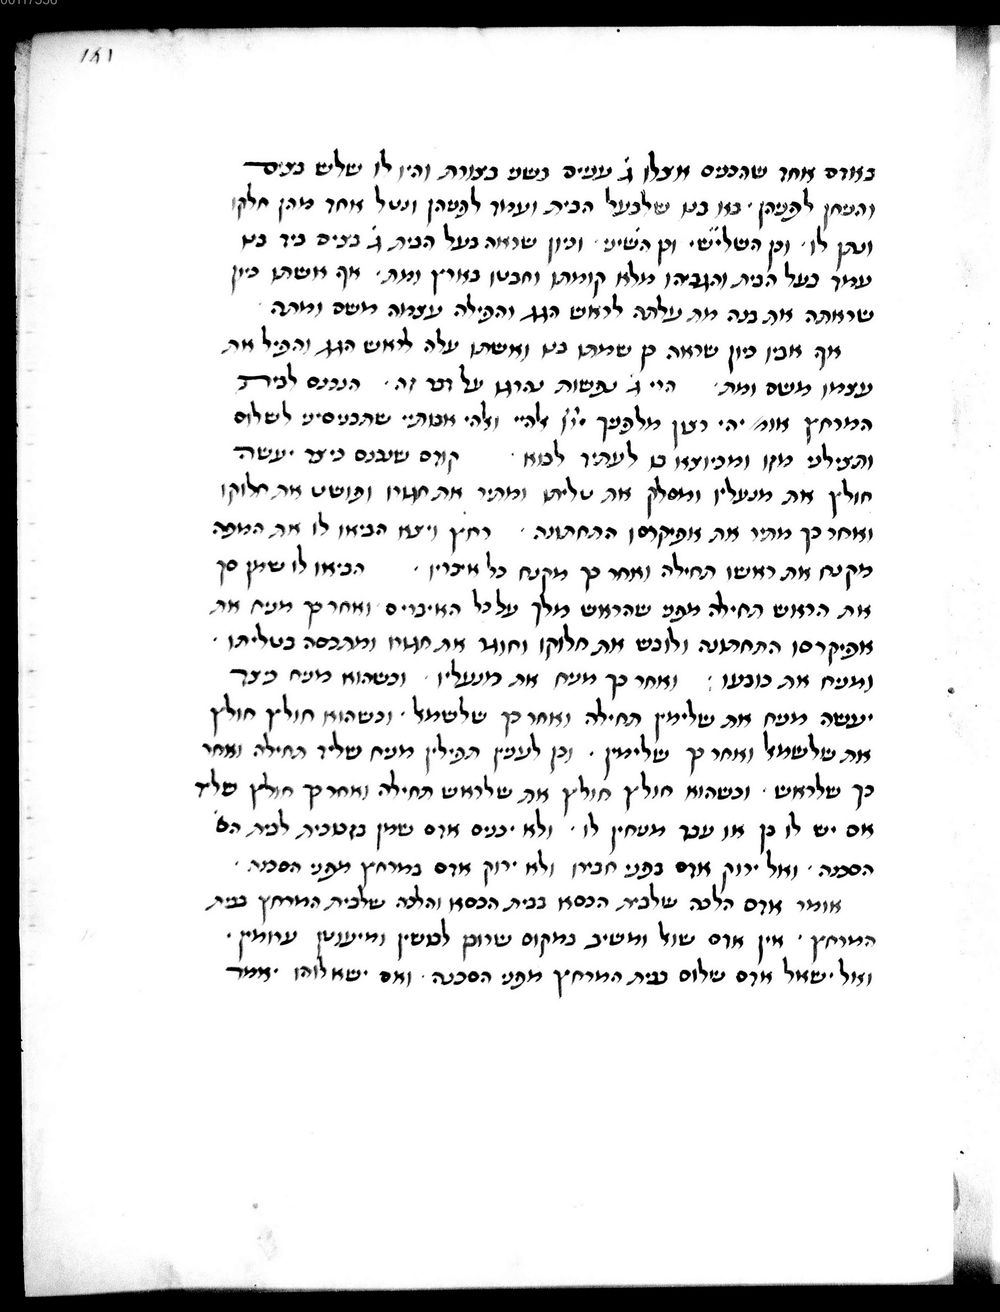 181
באדם אחד שהכניס אצלו ג' עניים בשני בצורת והיו לו שלש בצים
והניחן לפניהן. בא בנו שלבעל הבית ועמד לפניהן ונטל אחד מהן חלקו
ונתן לו. וכן השלישי וכן השיני. וכיון שראה בעל הבית ג' בצים ביד בנו
עמד בעל הבית והגביהו מלא קומתו וחבטו בארץ ומת. אף אשתו כיון
שראתה את בנה מת עלתה לראש הגג והפילה עצמה משם ומתה.
אף אביו כיון שראה כן שמתו בנו ואשתו עלה לראש הגג והפיל את
עצמו משם ומת. הרי ג' נפשות נהרגו על דבר זה. הנכנס לבית
המרחץ אומ' יהי רצון מלפניך ייי אלהיי ואלהי אבותיי שתכניסיני לשלום
ותצילני מזו ומכיוצא בו לעתיד לבוא. קודם שנכנס כיצד יעשה
חולץ את מנעליו ומסלק את טליתו ומתיר את חגורו ופושט את חלוקו
ואחר כך מתיר את אפיקרסו התחתונה. רחץ ויצא הביאו לו את המפה
מקנח את ראשו תחילה ואחר כך מקנח כל איבריו. הביאו לו שמן סך
את הראש תחילה מפני שהראש מלך על כל האיברים ואחר כך מניח את
אפיקרסו התחתונה ולובש את חלוקו וחוגר את חגורו ומתכסה בטליתו.
ומניח את כובעו: ואחר כך מניח את מנעליו. וכשהוא מניח כיצד
יעשה מניח את שלימין תחילה ואחר כך שלשמאל. וכשהוא חולץ חולץ
את שלשמאל ואחר כך שלימין. וכן לענין תפילין מניח שליד תחילה ואחר
כך שלראש. וכשהוא חולץ חולץ את שלראש תחילה ואחר כך חולץ שליד
אם יש לו בן או עבד מניחין לו. ולא יכניס אדם שמן בזכוכית לבית הס'
הסכנה. ואל ירוק אדם בפני חבירו ולא ירוק אדם במרחץ מפני הסכנה.
אומר אדם הלכה שלבית הכסא בבית הכסא והלכה שלבית המרחץ בבית
המרחץ. אין אדם שואל ומשיב במקום שרובן לבושין ומיעוטן ערומין.
ואל ישאל אדם שלום בבית המרחץ מפני הסכנה. ואם ישאלוהו יאמר